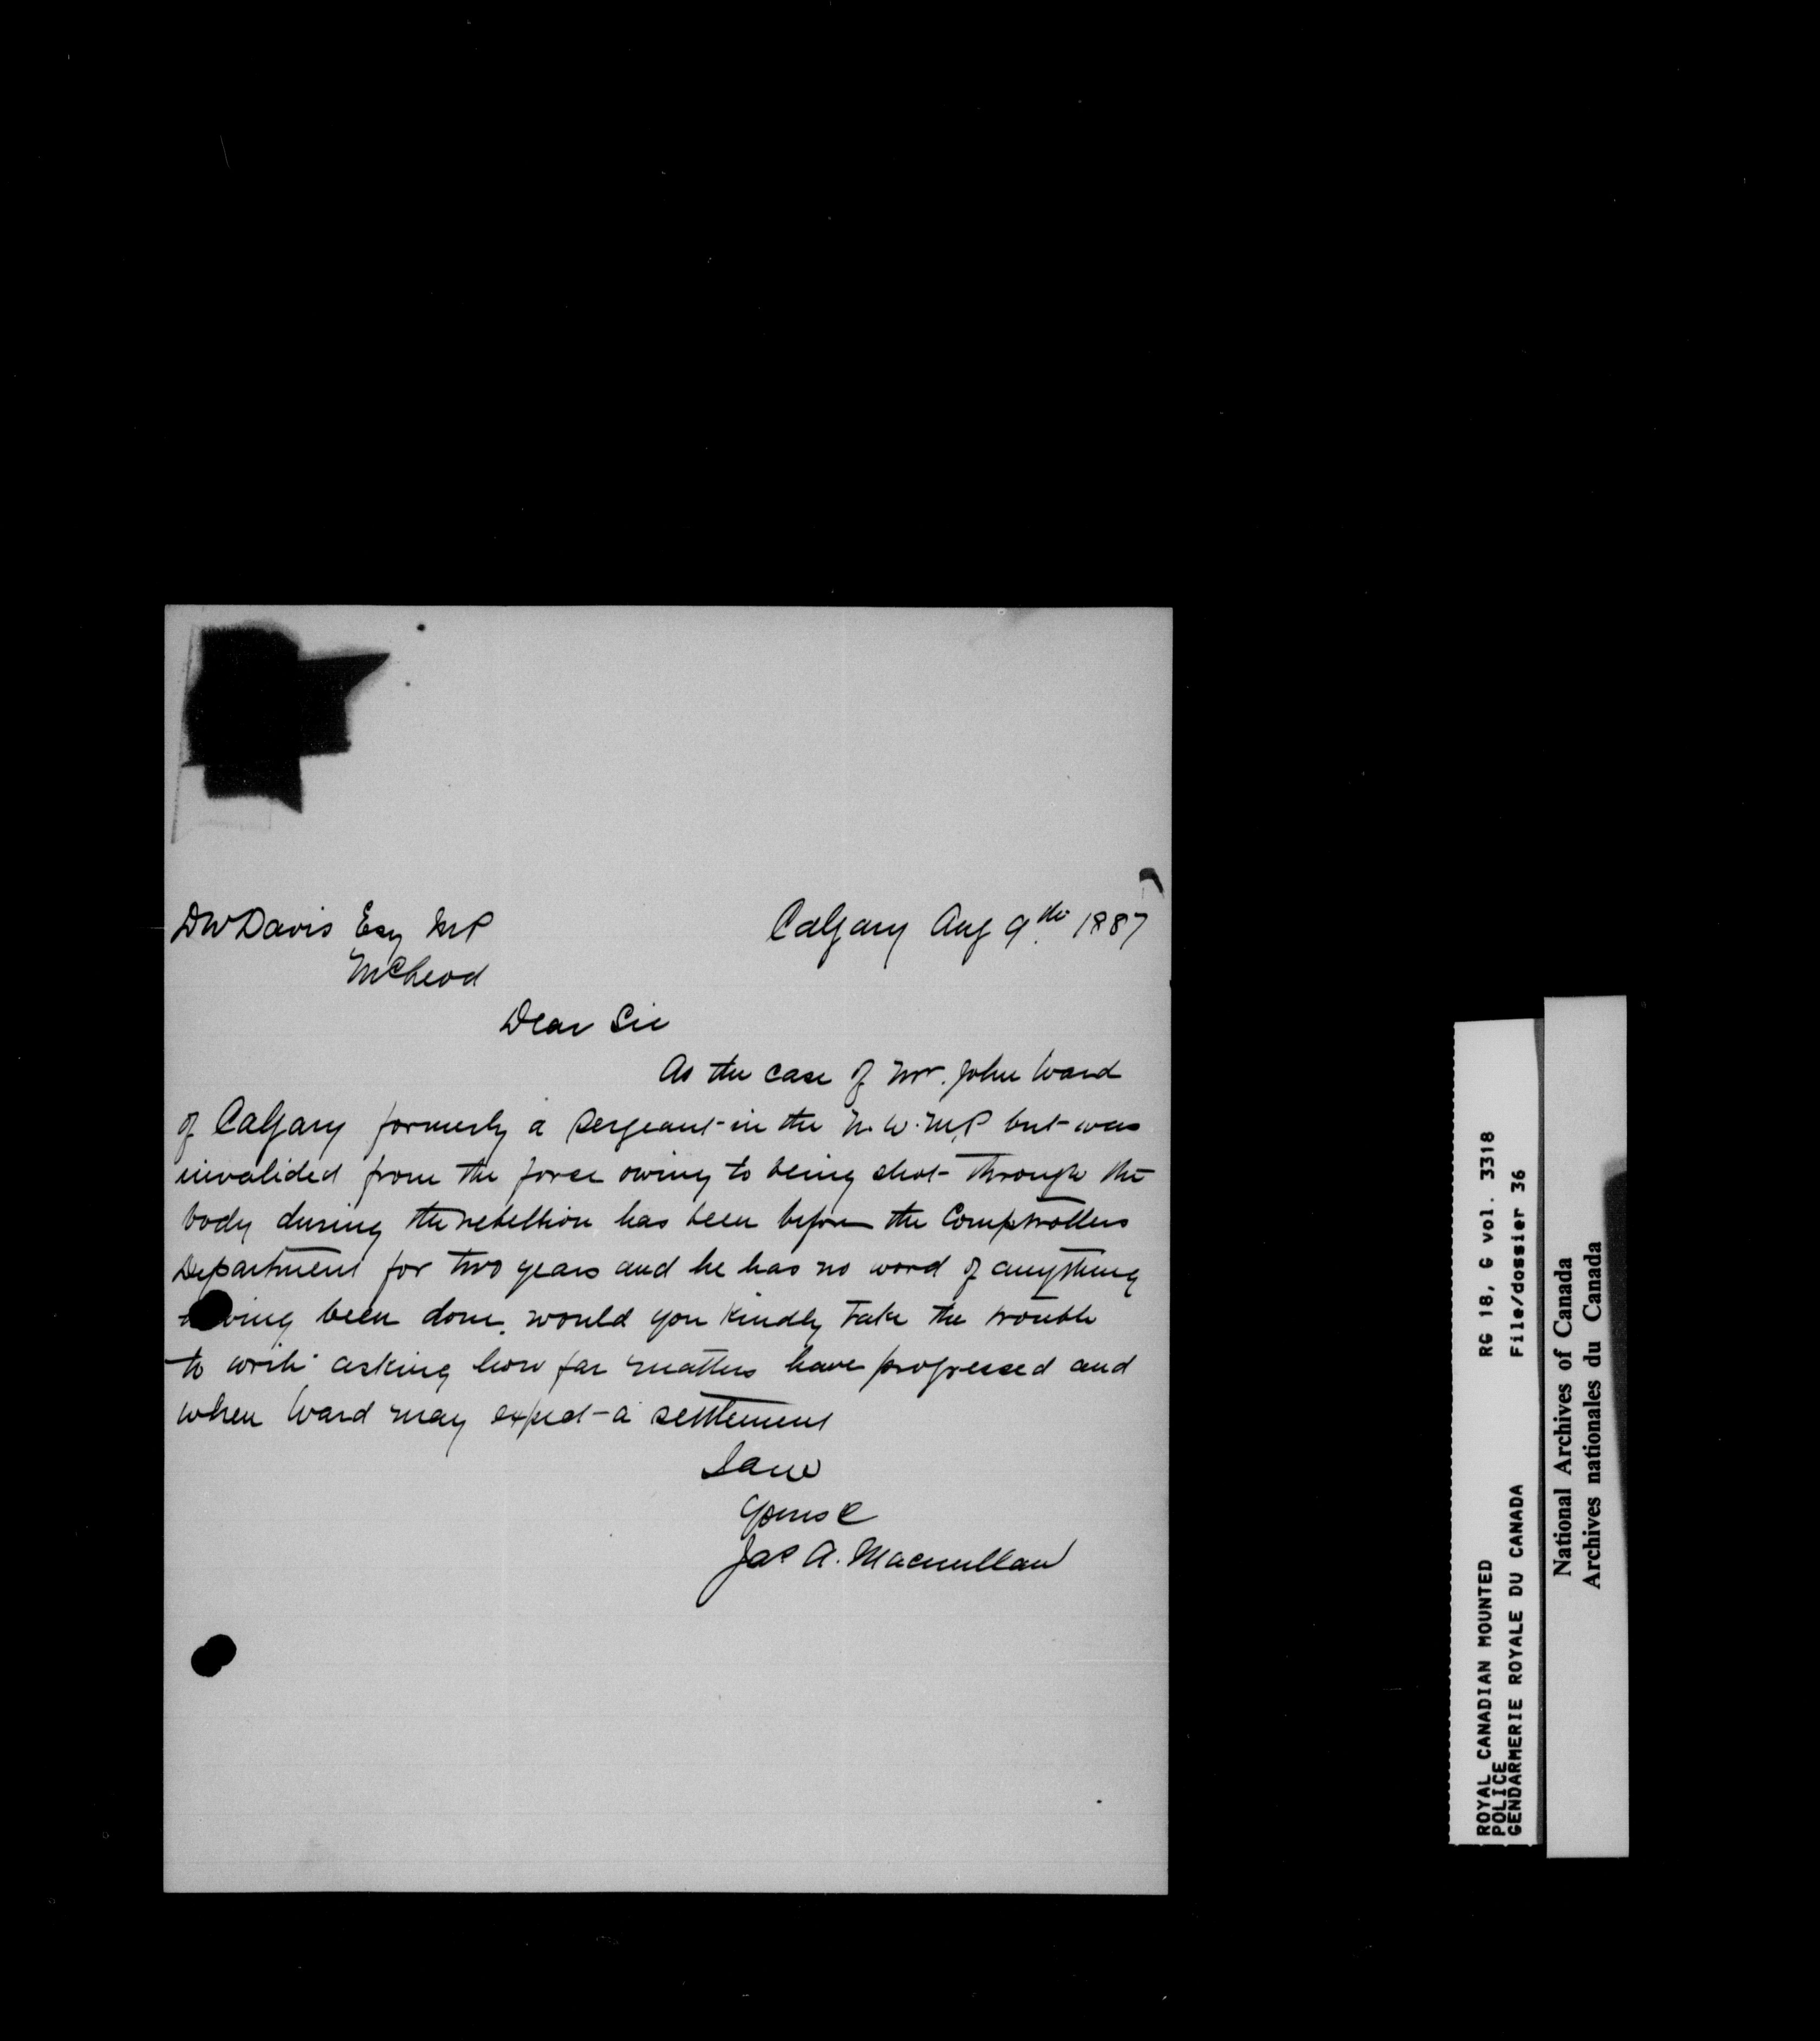 DW Davis Esq MP
Calgary Aug 9th 1887
McLeod
Dear Sir
As the case of Mr. John Ward
of Calgary formerly a Sergeant in the N.W.M.P but was
invalided from the force owing to being shot through the
body during the rebellion has been before the Comptrollers
Department for two years and he has no word of anything
having been done. would you kindly take the trouble
to write asking how far matters have progressed and
when Ward may expect a settlement
I am
Yours &
Jas A. Macmullan
ROYAL CANADIAN MOUNTED RG 18, G vol. 3318
POLICE File/dossier 36
GENDARMERIE ROYALE DU CANADA
National Archives of Canada
Archives nationales du Canada